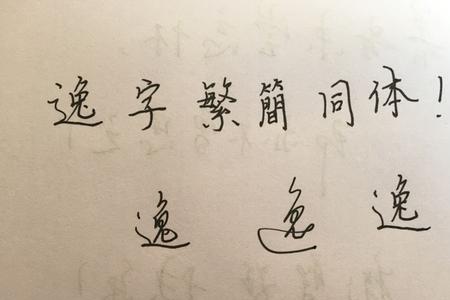 逸字繁簡同体！
逸 逸 逸